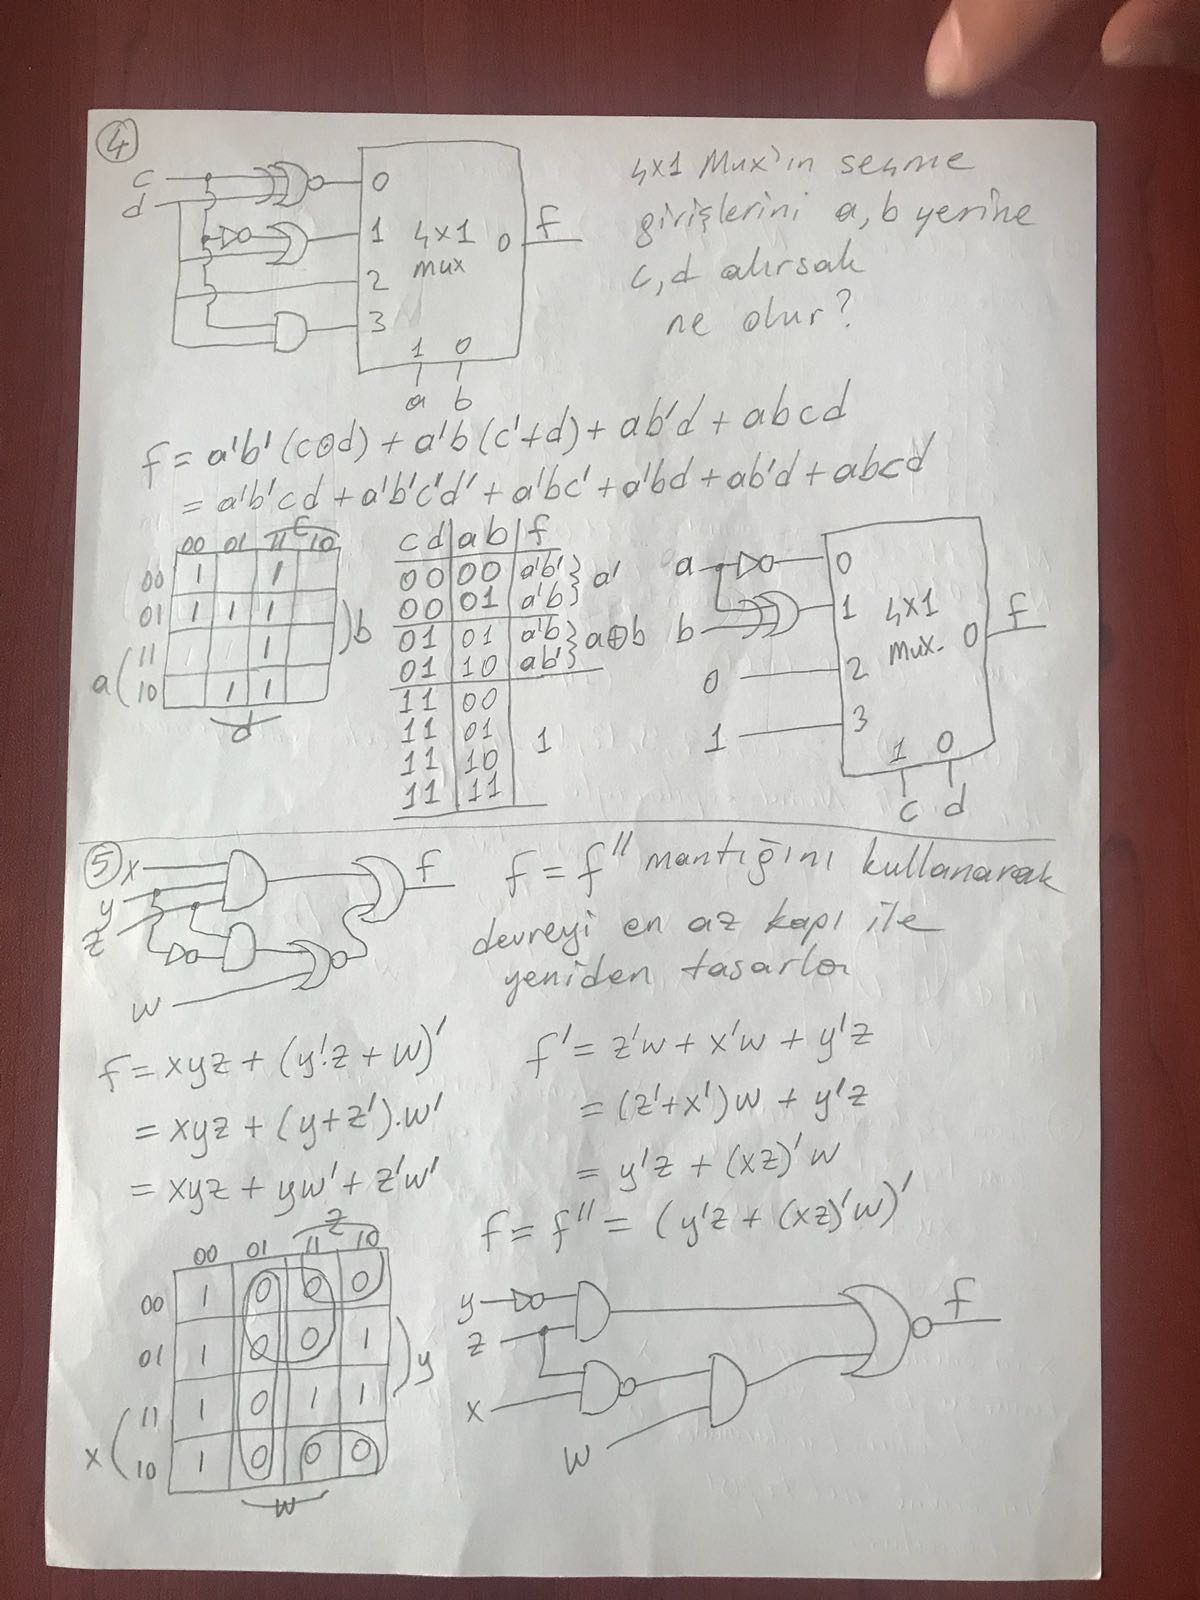 4
c
d
0
1
2
3
4x1
mux
0
f
1 0
a b
4x1 Mux'ın seçme
girişlerini a, b yerine
c, d alırsak
ne olur?
f = a'b'(c⊙d) + a'b(c'+d) + ab'd + abcd
= a'b'cd + a'b'c'd' + a'bc' + a'bd + ab'd + abcd
c
00 01 11 10
00 1 1
01 1 1 1
11 1
10 1 1
a
b
d
cd ab f
00 00 a'b'
00 01 a'b
a'
01 01 a'b
01 10 ab'
a⊕b
11 00
11 01
11 10
11 11
1
a
b
0
1
0
1
2
3
4x1
Mux.
0
f
1 0
c d
5
x
y
z
w
f
f = f'' mantığını kullanarak
devreyi en az kapı ile
yeniden tasarla
f = xyz + (y'.z + w)'
= xyz + (y+z').w'
= xyz + yw' + z'w'
f' = z'w + x'w + y'z
= (z'+x')w + y'z
= y'z + (xz)'w
f = f'' = (y'z + (xz)'w)'
z
00 01 11 10
00 1 0 0 0
01 1 0 0 1
11 1 0 1 1
10 1 0 0 0
x
y
w
y
z
x
w
f